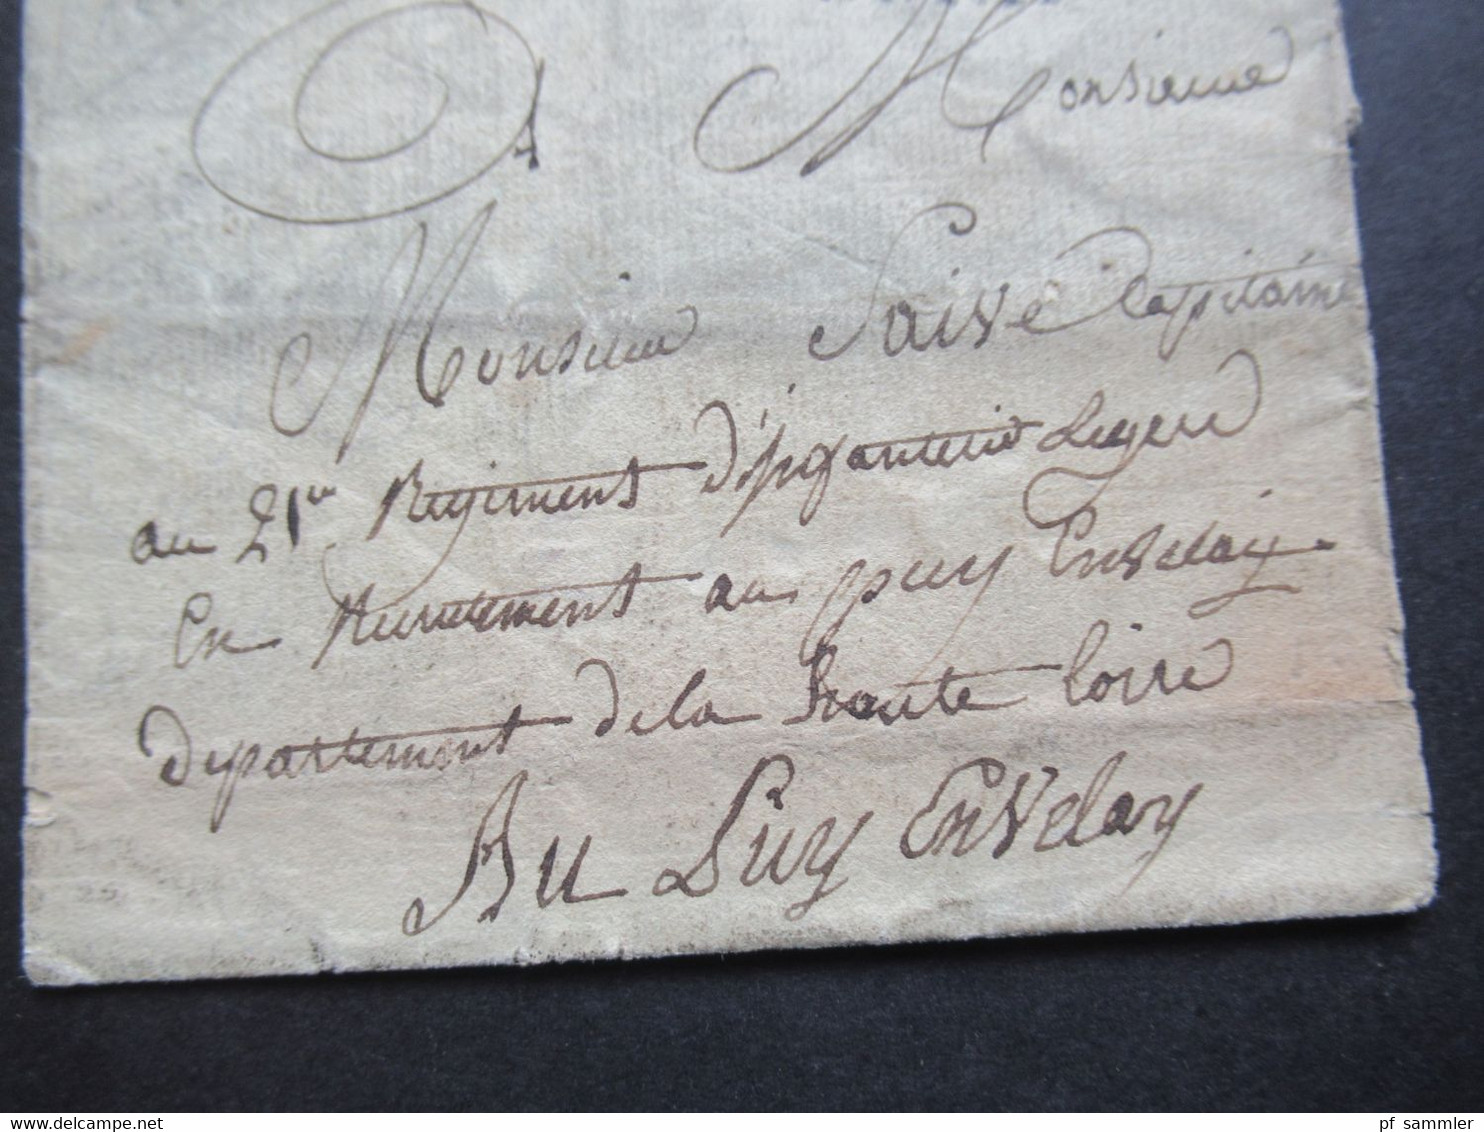 A Monsieur
Monsieur Saive Capitaine
au 21me Regiment d'infanterie Legere
En Recrutement au puy Envelay
Departement dela haute Loire
Au Puy EnVelay
pf_sammler